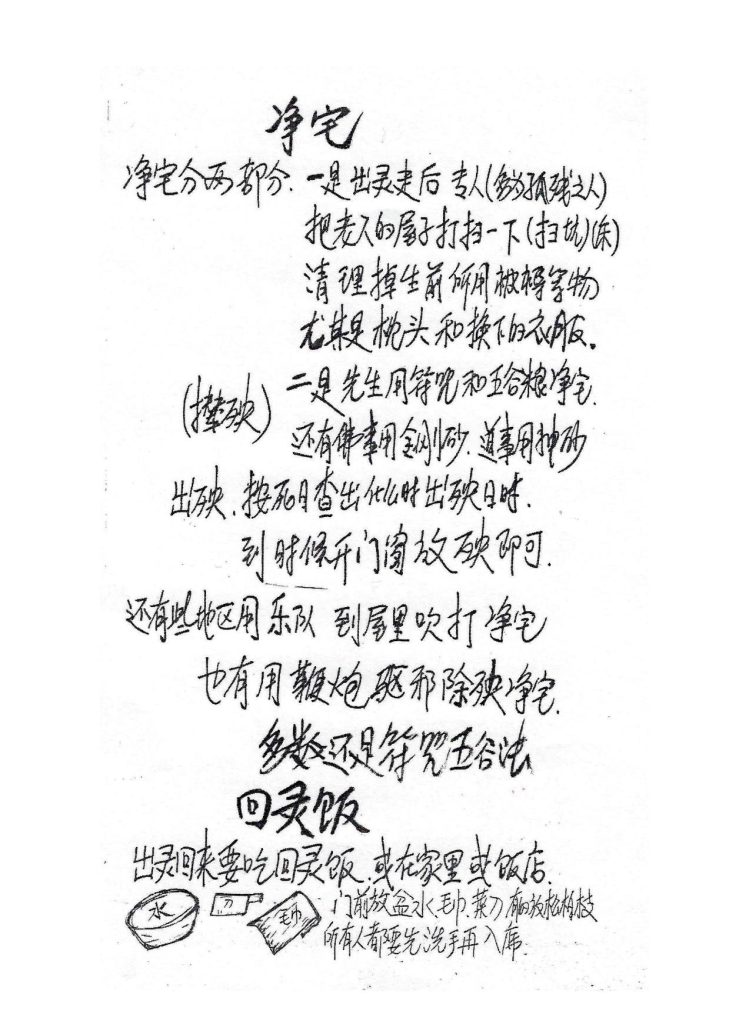 净宅
净宅分两部分.一是出灵走后 专人(多为孤残之人)
把老人的屋子打扫一下(扫坑)(床)
清理掉生前所用被褥等物
尤其是枕头和换下的衣服.
二是先生用符咒和五谷粮净宅.
(撵殃)
还有佛事用金刚砂.道事用神砂
出殃.按死日查出什么时出殃日时.
到时候开门窗放殃即可.
还有些地区用乐队 到屋里吹打净宅
也有用鞭炮驱邪除殃净宅.
多数还是符咒五谷法
回灵饭
出灵回来要吃回灵饭.或在家里或饭店.
水 刀 毛巾
门前放盆水毛巾.菜刀 有的放松柏枝
所有人都要先洗手再入席.